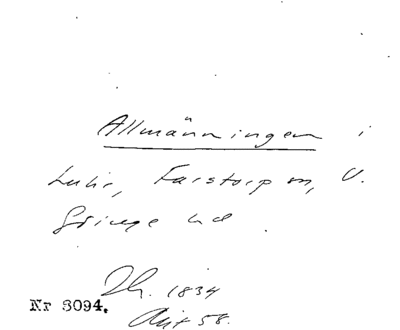 Allmänningen i
Luhr, Farstorp sn, V.
Göinge hd.
Th. 1834
Nr 3094.
Akt 58.